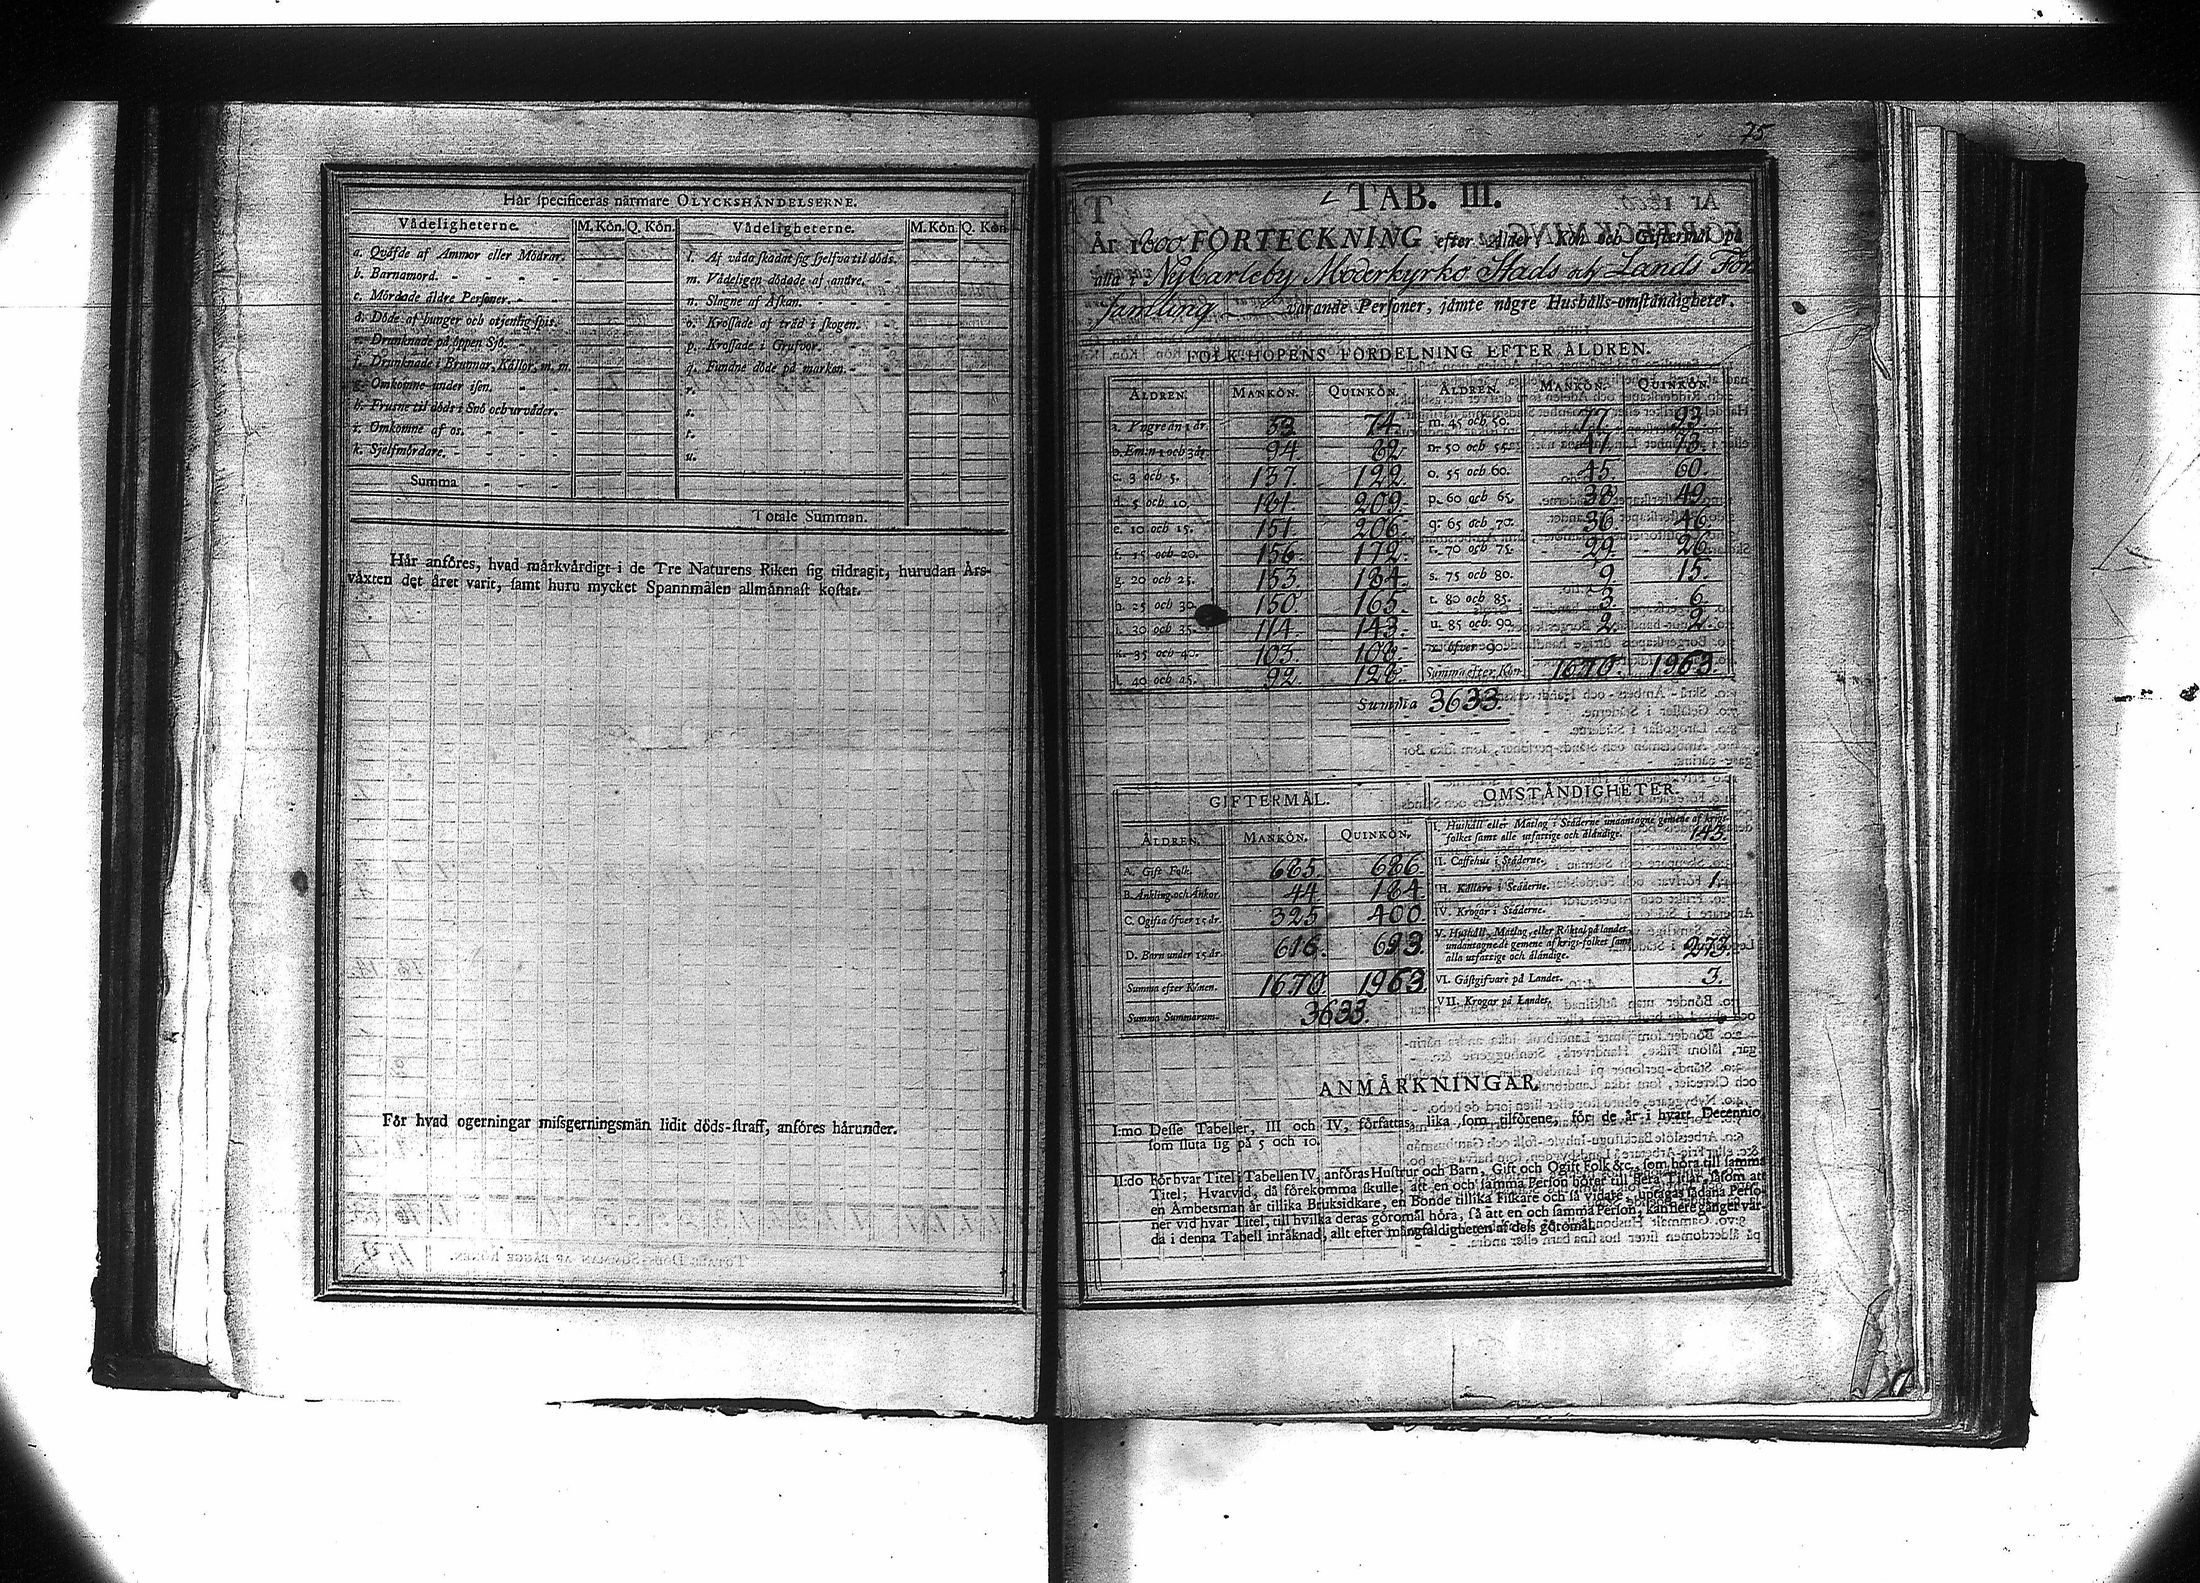 Hår specificeras närmare OLYCKSHÅNDELSERNE.
Vådeligheterne. M. Kön. Q. Kön. Vådeligheterne. M. Kön. Q. Kön.
a. Qväfde af Ammor eller Mödrar.
b. Barnamord.
c. Mördade äldre Personer.
d. Döde af hunger och otjenlig spis.
e. Drunknade på öppen Sjö.
f. Drunknade i Brunnar, Källor, m. m.
g. Omkomne under isen.
h. Frusne til döds i Snö och urväder.
i. Omkomne af os.
k. Sjelfmördare.
Summa
l. Af våda skadat sig sjelfva til döds.
m. Vådeligen dödade af andre.
n. Slagne af Åskan.
o. Krossade af träd i skogen.
p. Krossade i Grufvor.
q. Fundne döde på marken.
r.
s.
t.
u.
Totale Summan.
Hår anföres, hvad märkvärdigt i de Tre Naturens Riken sig tildragit, hurudan Års-
växten det året varit, samt huru mycket Spannmålen allmånnast kostat.
För hvad ogerningar missgerningsmän lidit döds-straff, anföres hårunder.
75
TAB. III.
År 1800. FÖRTECKNING efter Ålder Kön och Giftermål på
alla i Nycarleby Moderkyrko Stads och Lands För
samling varande Personer, jämte någre Hushålls-omständigheter.
FOLK-HOPENS FÖRDELNING EFTER ÅLDREN.
ÅLDREN. MANKÖN. QUINKÖN. ÅLDREN. MANKÖN. QUINKÖN.
a. Yngre än 1 år. 74. m. 45 och 50. 77. 93.
b. Emin 1 och 3 år. 94. 82. n. 50 och 55. 47. 73.
c. 3 och 5. 137. 122. o. 55 och 60. 45. 60.
d. 5 och 10. 209. p. 60 och 65. 38. 49.
e. 10 och 15. 151. 206. q. 65 och 70. 36. 46.
f. 15 och 20. 156. 172. r. 70 och 75. 29. 26.
g. 20 och 25. 153. 184. s. 75 och 80. 9. 15.
h. 25 och 30. 150. 165. t. 80 och 85. 3. 6.
i. 30 och 35. 114. 143. u. 85 och 90. 2. 2.
k. 35 och 40. 103. 108. x. öfver 90.
l. 40 och 45. 92. 128. Summa efter Kön. 1670. 1963.
Summa 3633.
GIFTERMÅL.
ÅLDREN. MANKÖN. QUINKÖN.
A. Gift Folk. 685. 686.
B. Änkling. och Änkor. 44. 184.
C. Ogifta öfver 15 år. 325. 400.
D. Barn under 15 år. 616. 693.
Summa efter Könen. 1670. 1963.
Summa Summarum. 3633.
OMSTÄNDIGHETER.
I. Hushåll eller Matlag i Städerne undantagne gemene af krigs-
folket samt alle utfattige och åländige. 143.
II. Caffehus i Städerne.
III. Källare i Städerne. 1.
IV. Krogar i Städerne.
V. Hushåll, Matlag, eller Röktal på landet,
undantagne de gemene af krigs-folket samt
alla utfattige och åländige. 273.
VI. Gästgifvare på Landet. 3.
VII. Krogar på Landet.
ANMÄRKNINGAR.
I:mo Desse Tabeller, III och IV, författas, lika som tilförene, för de år i hvart Decennio,
som sluta sig på 5 och 10.
II:do För hvar Titel i Tabellen IV, anföras Hustrur och Barn, Gift och Ogift Folk &c., som höra till samma
Titel; Hvarvid, då förekomma skulle, att en och samma Person hörer till flera Titlar, såsom att
en Ämbetsman är tillika Bruksidkare, en Bonde tillika Fiskare och så vidare, upptagas sådana Perso-
ner vid hvar Titel, till hvilka deras göromål höra, så att en och samma Person, kan flere gånger var-
da i denna Tabell inräknad, allt efter mångfaldigheten af dess göromål.